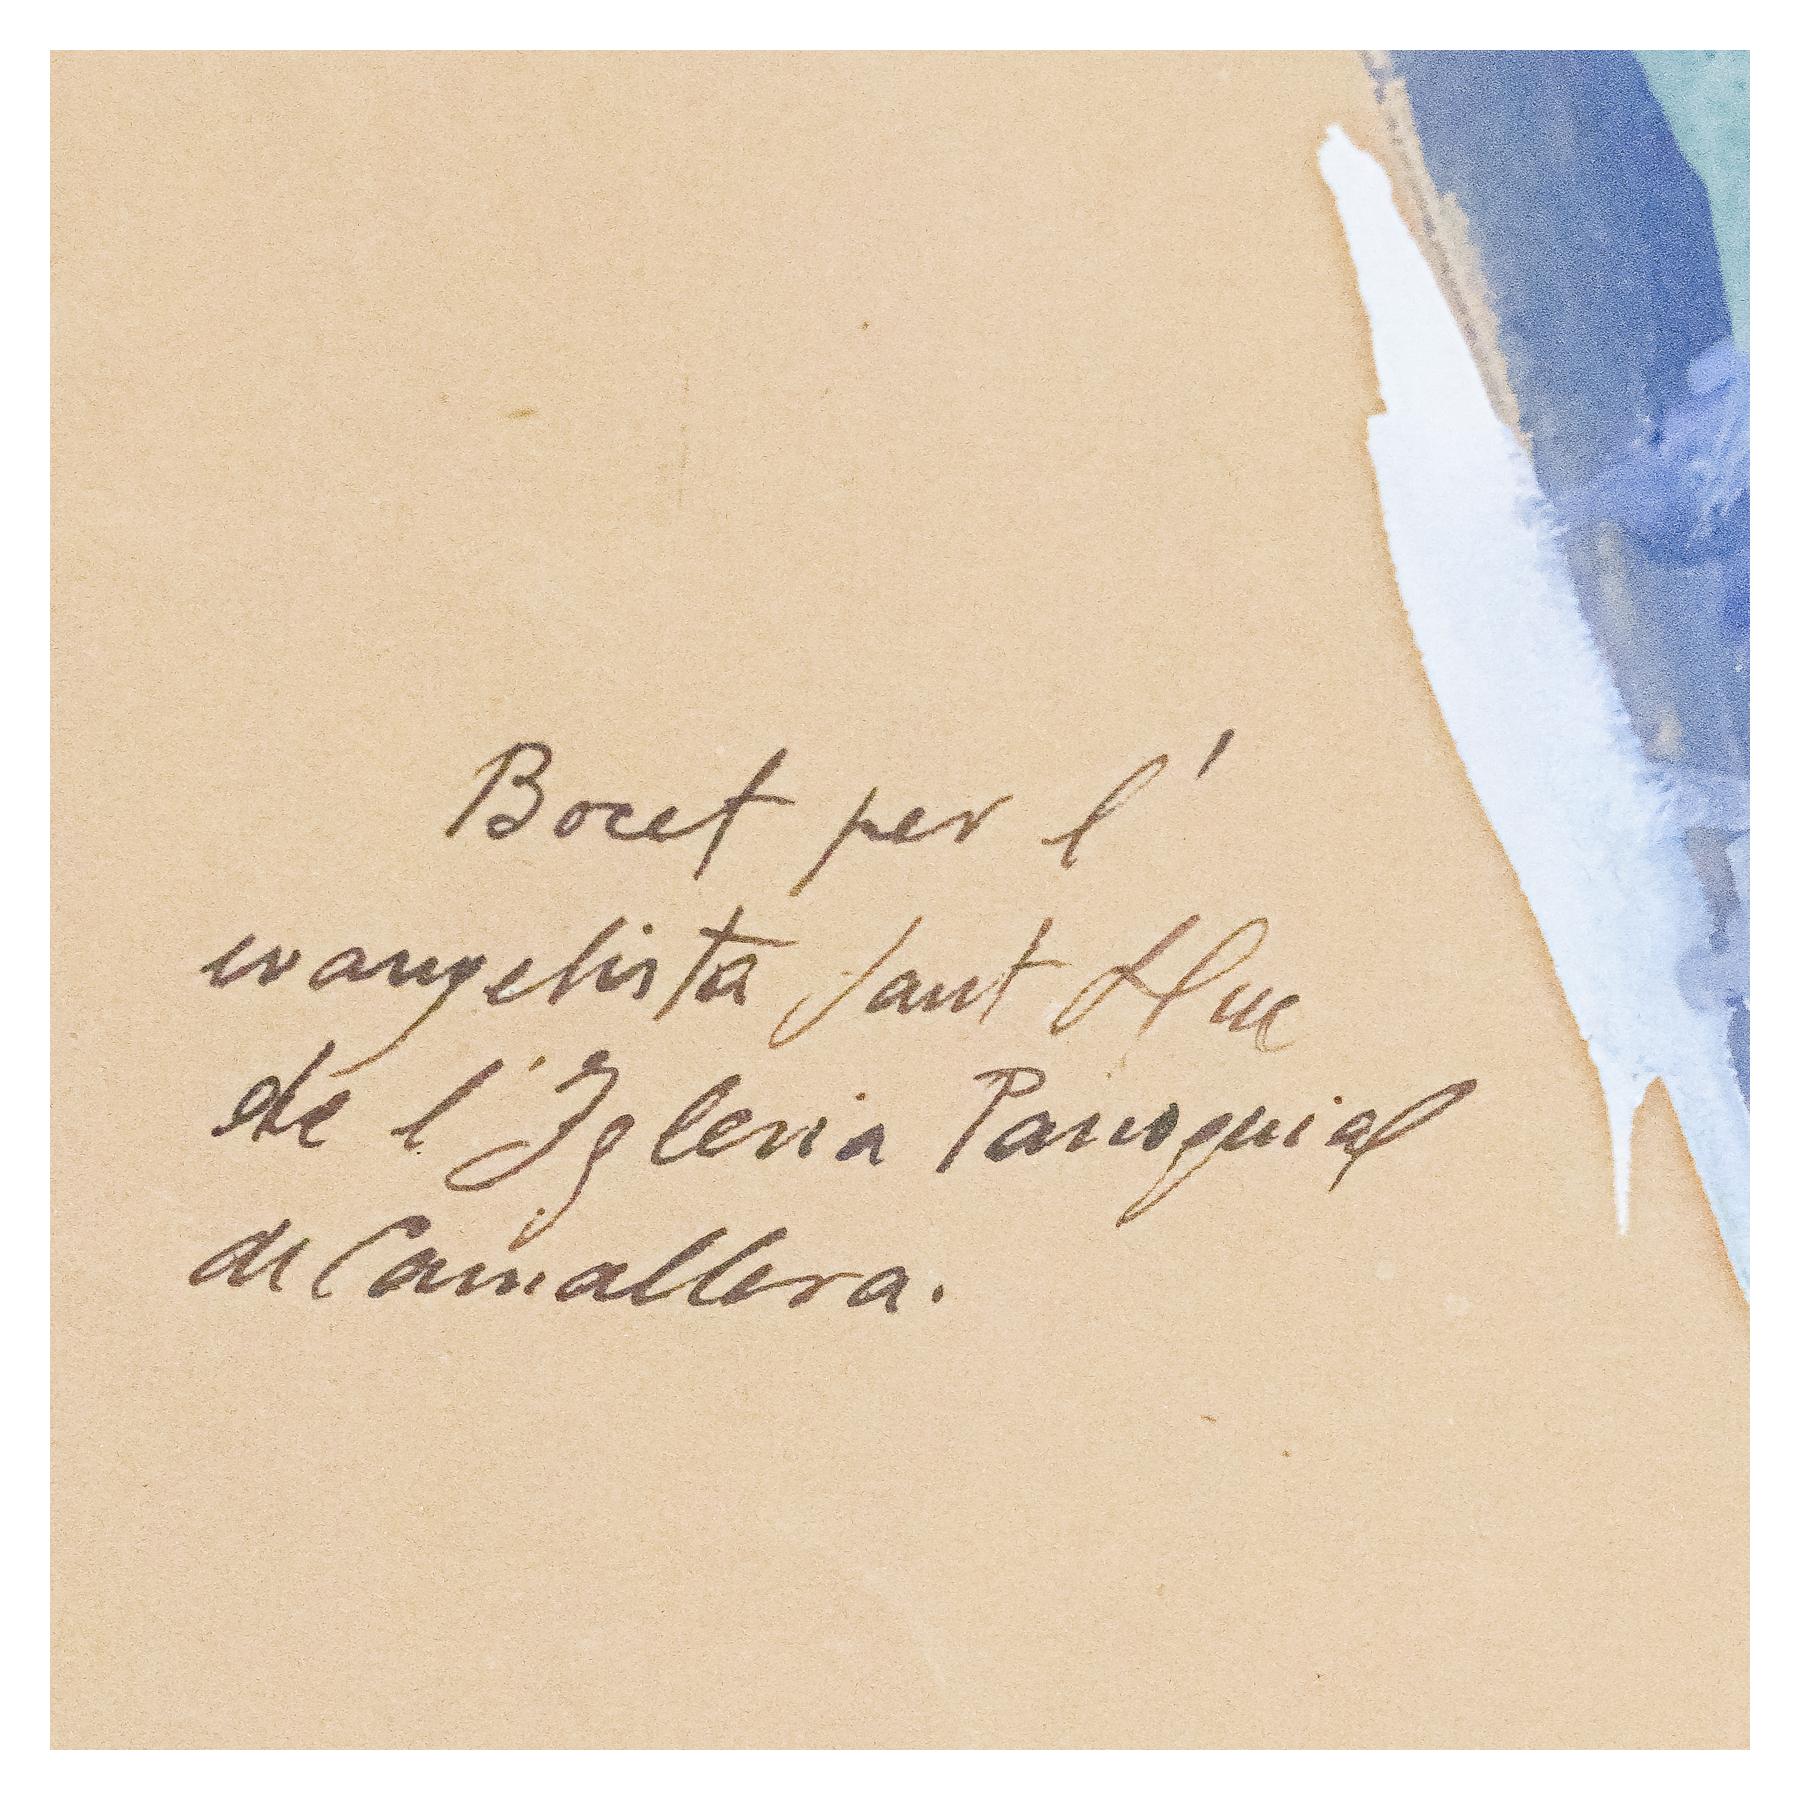 Bocet per l'
evangelista Sant Lluc
de l'Iglesia Parroquial
de Camallera.